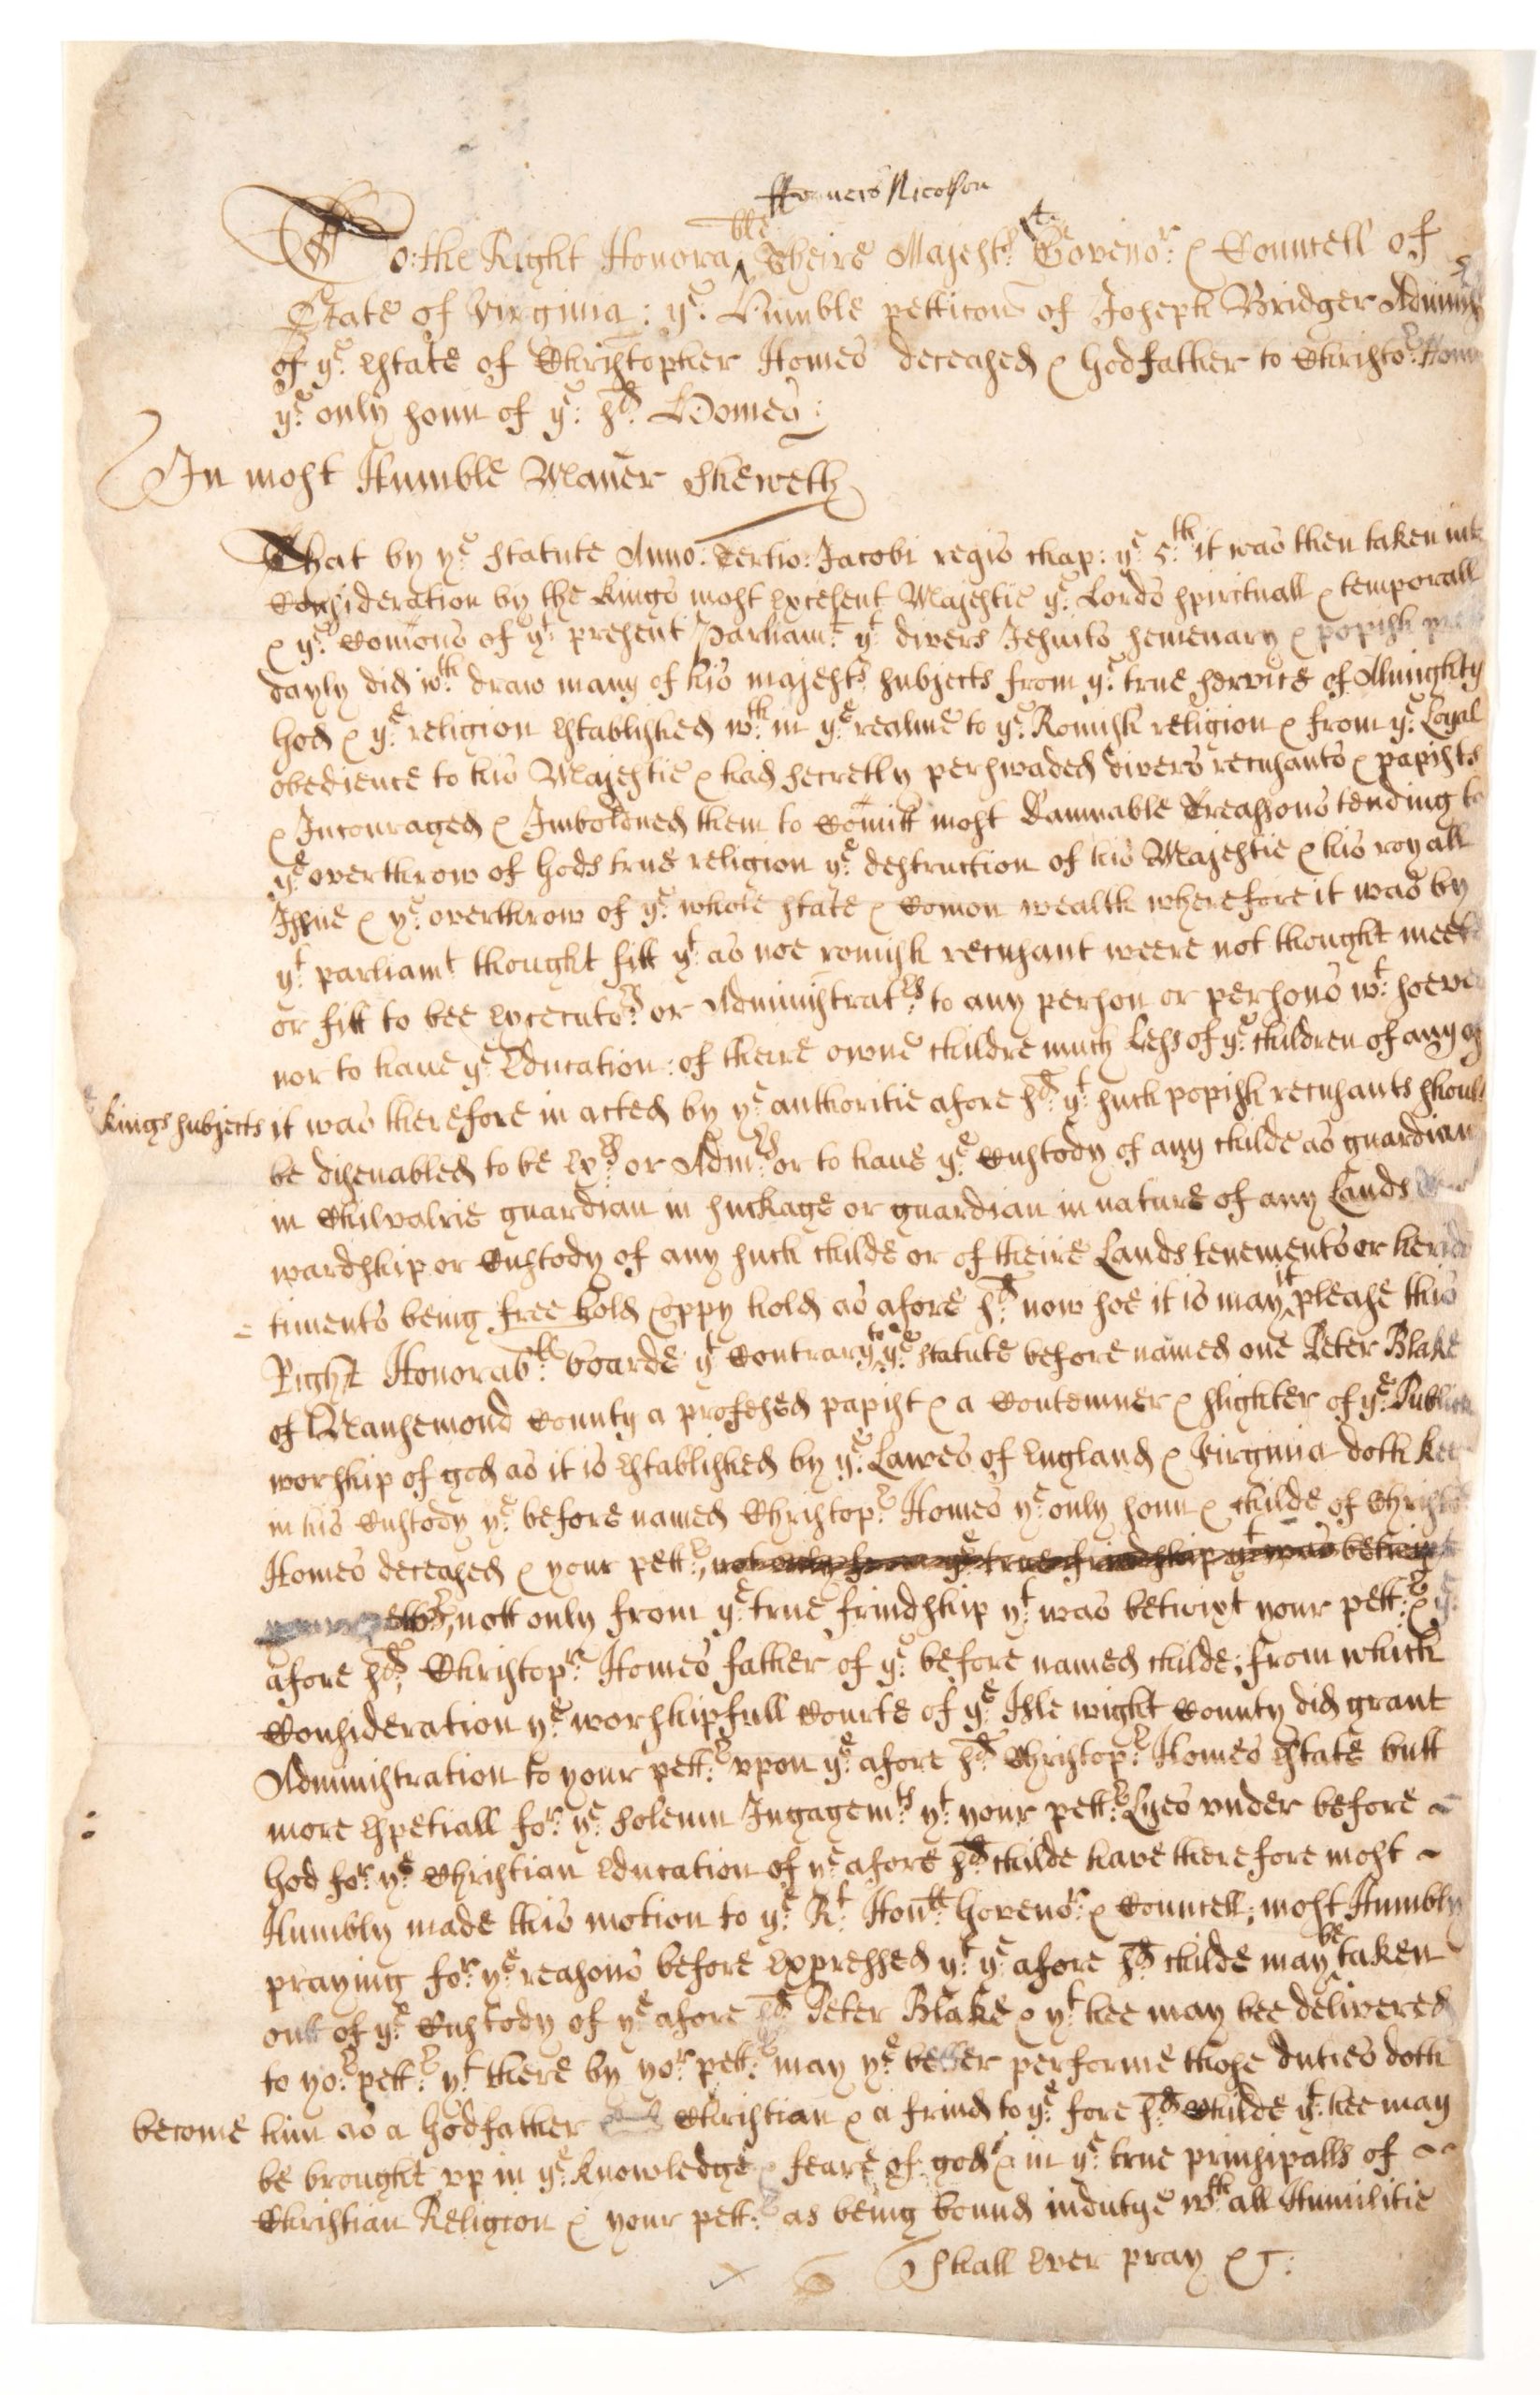 ffrancis Nicolson
To: the Right Honorable Theire Majests. Lt. Goveno.r & Councell of
State of Virginia: ye. Humble petticon of Joseph Bridger Adminisr
of ye. Estate of Christopher Homes deceased & Godfather to Christor. Homes
ye. only sonn of ye. sd. Homes:
In most Humble Maner Sheweth
That by ye. Statute Anno: Tertio: Jacobi regis chap: ye. 5.th it was then taken into
Consideration by the Kings most Excelent Majestie ye. Lords spirituall & temporall
& ye. Comons of yt. present Parliamt. yt. divers Jesuits semenary & popish
dayly did wth. draw many of his majests. subjects from ye. true service of Almighty
God & ye. religion Established wth. in ye. realme to ye. Romish religion & from ye. Loyal
obedience to his Majestie & had secretly perswaded divers recusants & papists
& Incouraged & Imboldned them to Comitt most Damnable Treasons tending to
ye. overthrow of Gods true religion ye. destruction of his Majestie & his royall
Issue & ye. overthrow of ye. whole state & Comon wealth wherefore it was by
yt. parliamt. thought fitt yt. as noe romish recusant weere not thought meete
or fitt to bee Executors. or Administratrs. to any person or persons wt. soever
nor to have ye. Education: of theire owne childre much Less of ye. children of any of
Kings subjects it was therefore in acted by ye. authoritie afore sd. yt. such popish recusants should
be disenabled to be Exrs. or Admrs. or to have ye. Custody of any childe as guardian
in Chilvalrie guardian in suckage or guardian in nature of any Lands
wardship or Custody of any such childe or of theire Lands tenements or herida
timents being free hold Coppy hold as afore sd. now soe it is may it please this
Right Honorable. boarde yt. Contrary to ye. statute before named one Peter Blake
of Nansemond County a professed papist & a Contemner & slighter of ye. Publick
worship of god as it is Established by ye. Lawes of England & Virginia doth kee
in his Custody ye. before named Christopr. Homes ye. only sonn & childe of Christo
Homes deceased & your pettr., not only from ye. true frindship yt. was betwixt
nott only from ye. true frindship yt. was betwixt your pettr. & ye.
afore sd. Christopr. Homes father of ye. before named childe; from which
Consideration ye. worshipfull Courte of ye. Isle wight County did grant
Administration to your pettr. upon ye. afore sd. Christopr. Homes Estate butt
more Espetiall for. ye. solemn Ingagemts. yt. your pettr. Lyes under before ~
God for. ye. Christian Education of ye. afore sd. childe have therefore most ~
Humbly made this motion to ye. Rt. Honble. Govenor. & Councell; most Humbly
praying for. ye. reasons before Expressed yt. ye. afore sd. childe may be taken
outt of ye. Custody of ye. afore sd. Peter Blake & yt. hee may bee delivered
to yor. pettr. yt. there by yor. pettr. may ye. better performe those duties doth
become him as a Godfather Christian & a frind to ye. fore sd. Childe yt. hee may
be brought up in ye. Knowledge & feare of god & in ye. true prinsipalls of ~
Christian Religion & your pettr. as being bound in dutye wth. all Humilitie
Shall Ever pray &c: